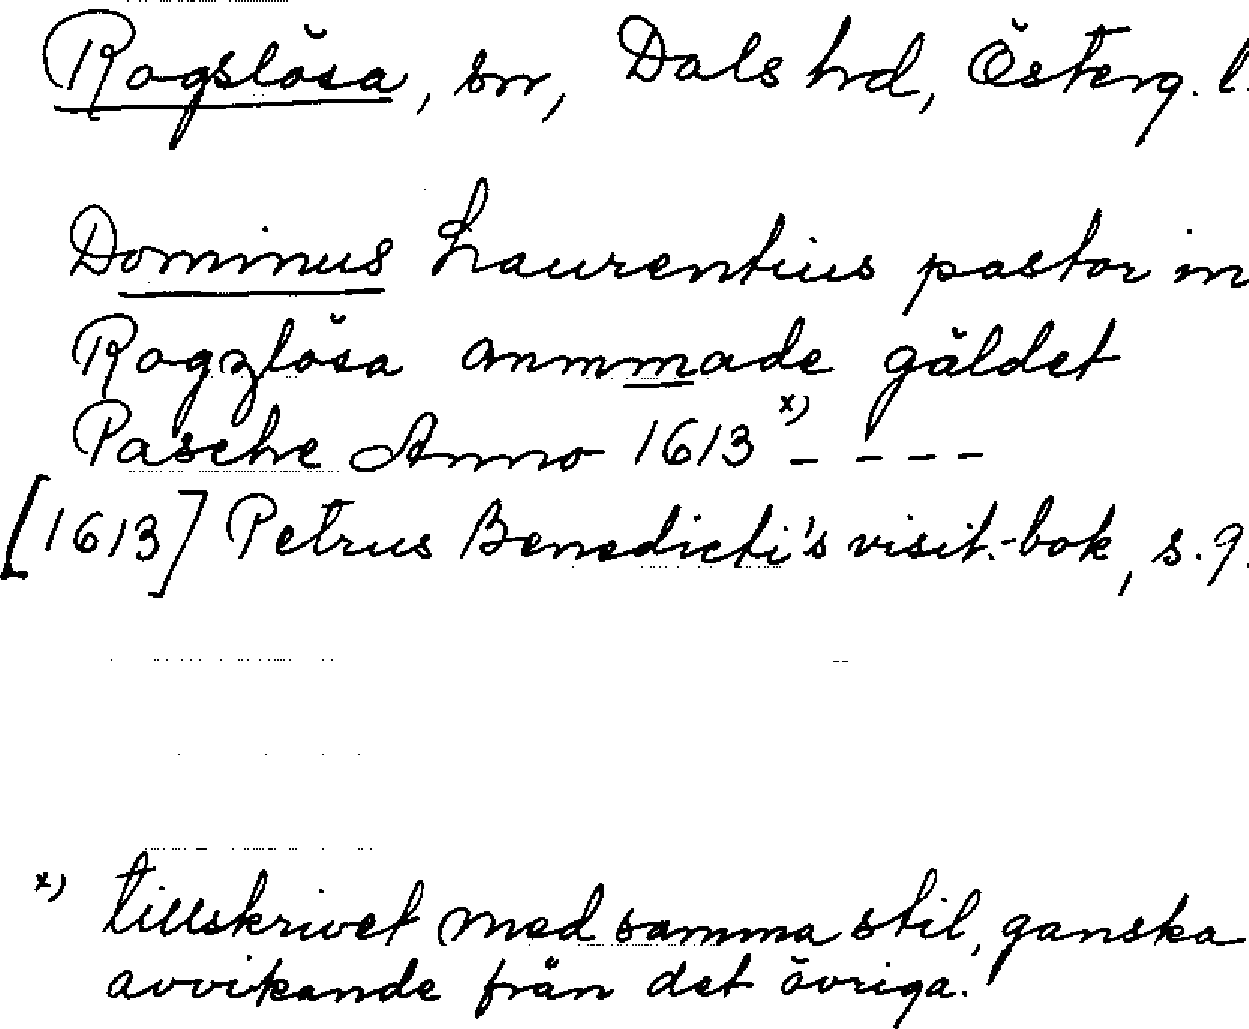 Rogslösa, sn, Dals hrd, Österg. l.
Dominus Laurentius pastor in
Rogzlösa anmmade gäldet
Pasche Anno 1613 x) - - - -
[1613] Petrus Benedicti's visit.-bok, s. 9.
x) tillskrivet med samma stil, ganska
avvikande från det övriga.